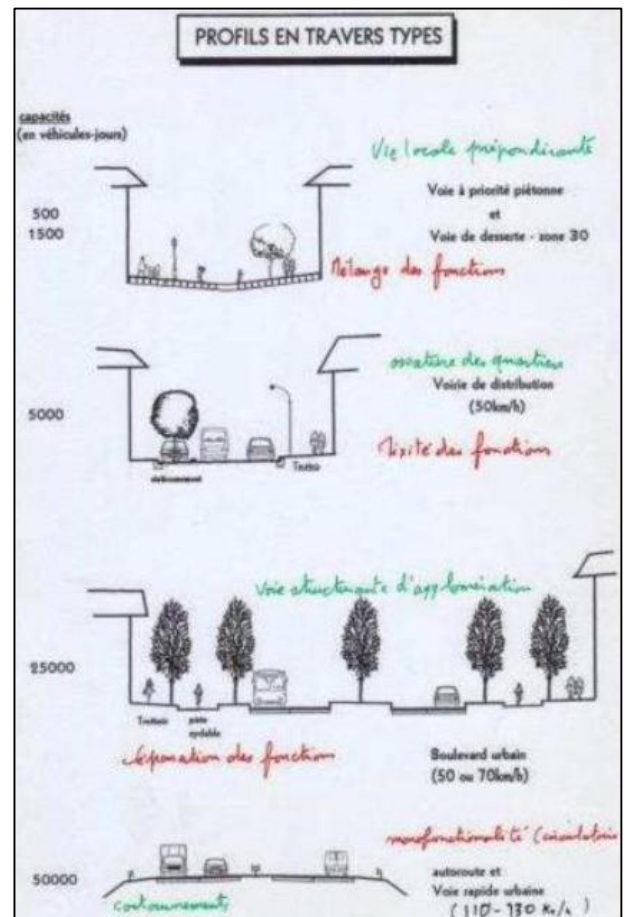 PROFILS EN TRAVERS TYPES
capacités
(en véhicules-jours)
Vie locale prépondérante
500
1500
Voie à priorité piétonne
et
Voie de desserte - zone 30
Mélange des fonctions
ossature des quartiers
5000
Voirie de distribution
(50km/h)
Mixité des fonctions
stationnement
Trottoir
Voie structurante d'agglomération
25000
Trottoir
piste
cyclable
Séparation des fonctions
Boulevard urbain
(50 ou 70km/h)
monofonctionalité (circulatoire
50000
autoroute et
Voie rapide urbaine
contournements
(110-130 Km/h)